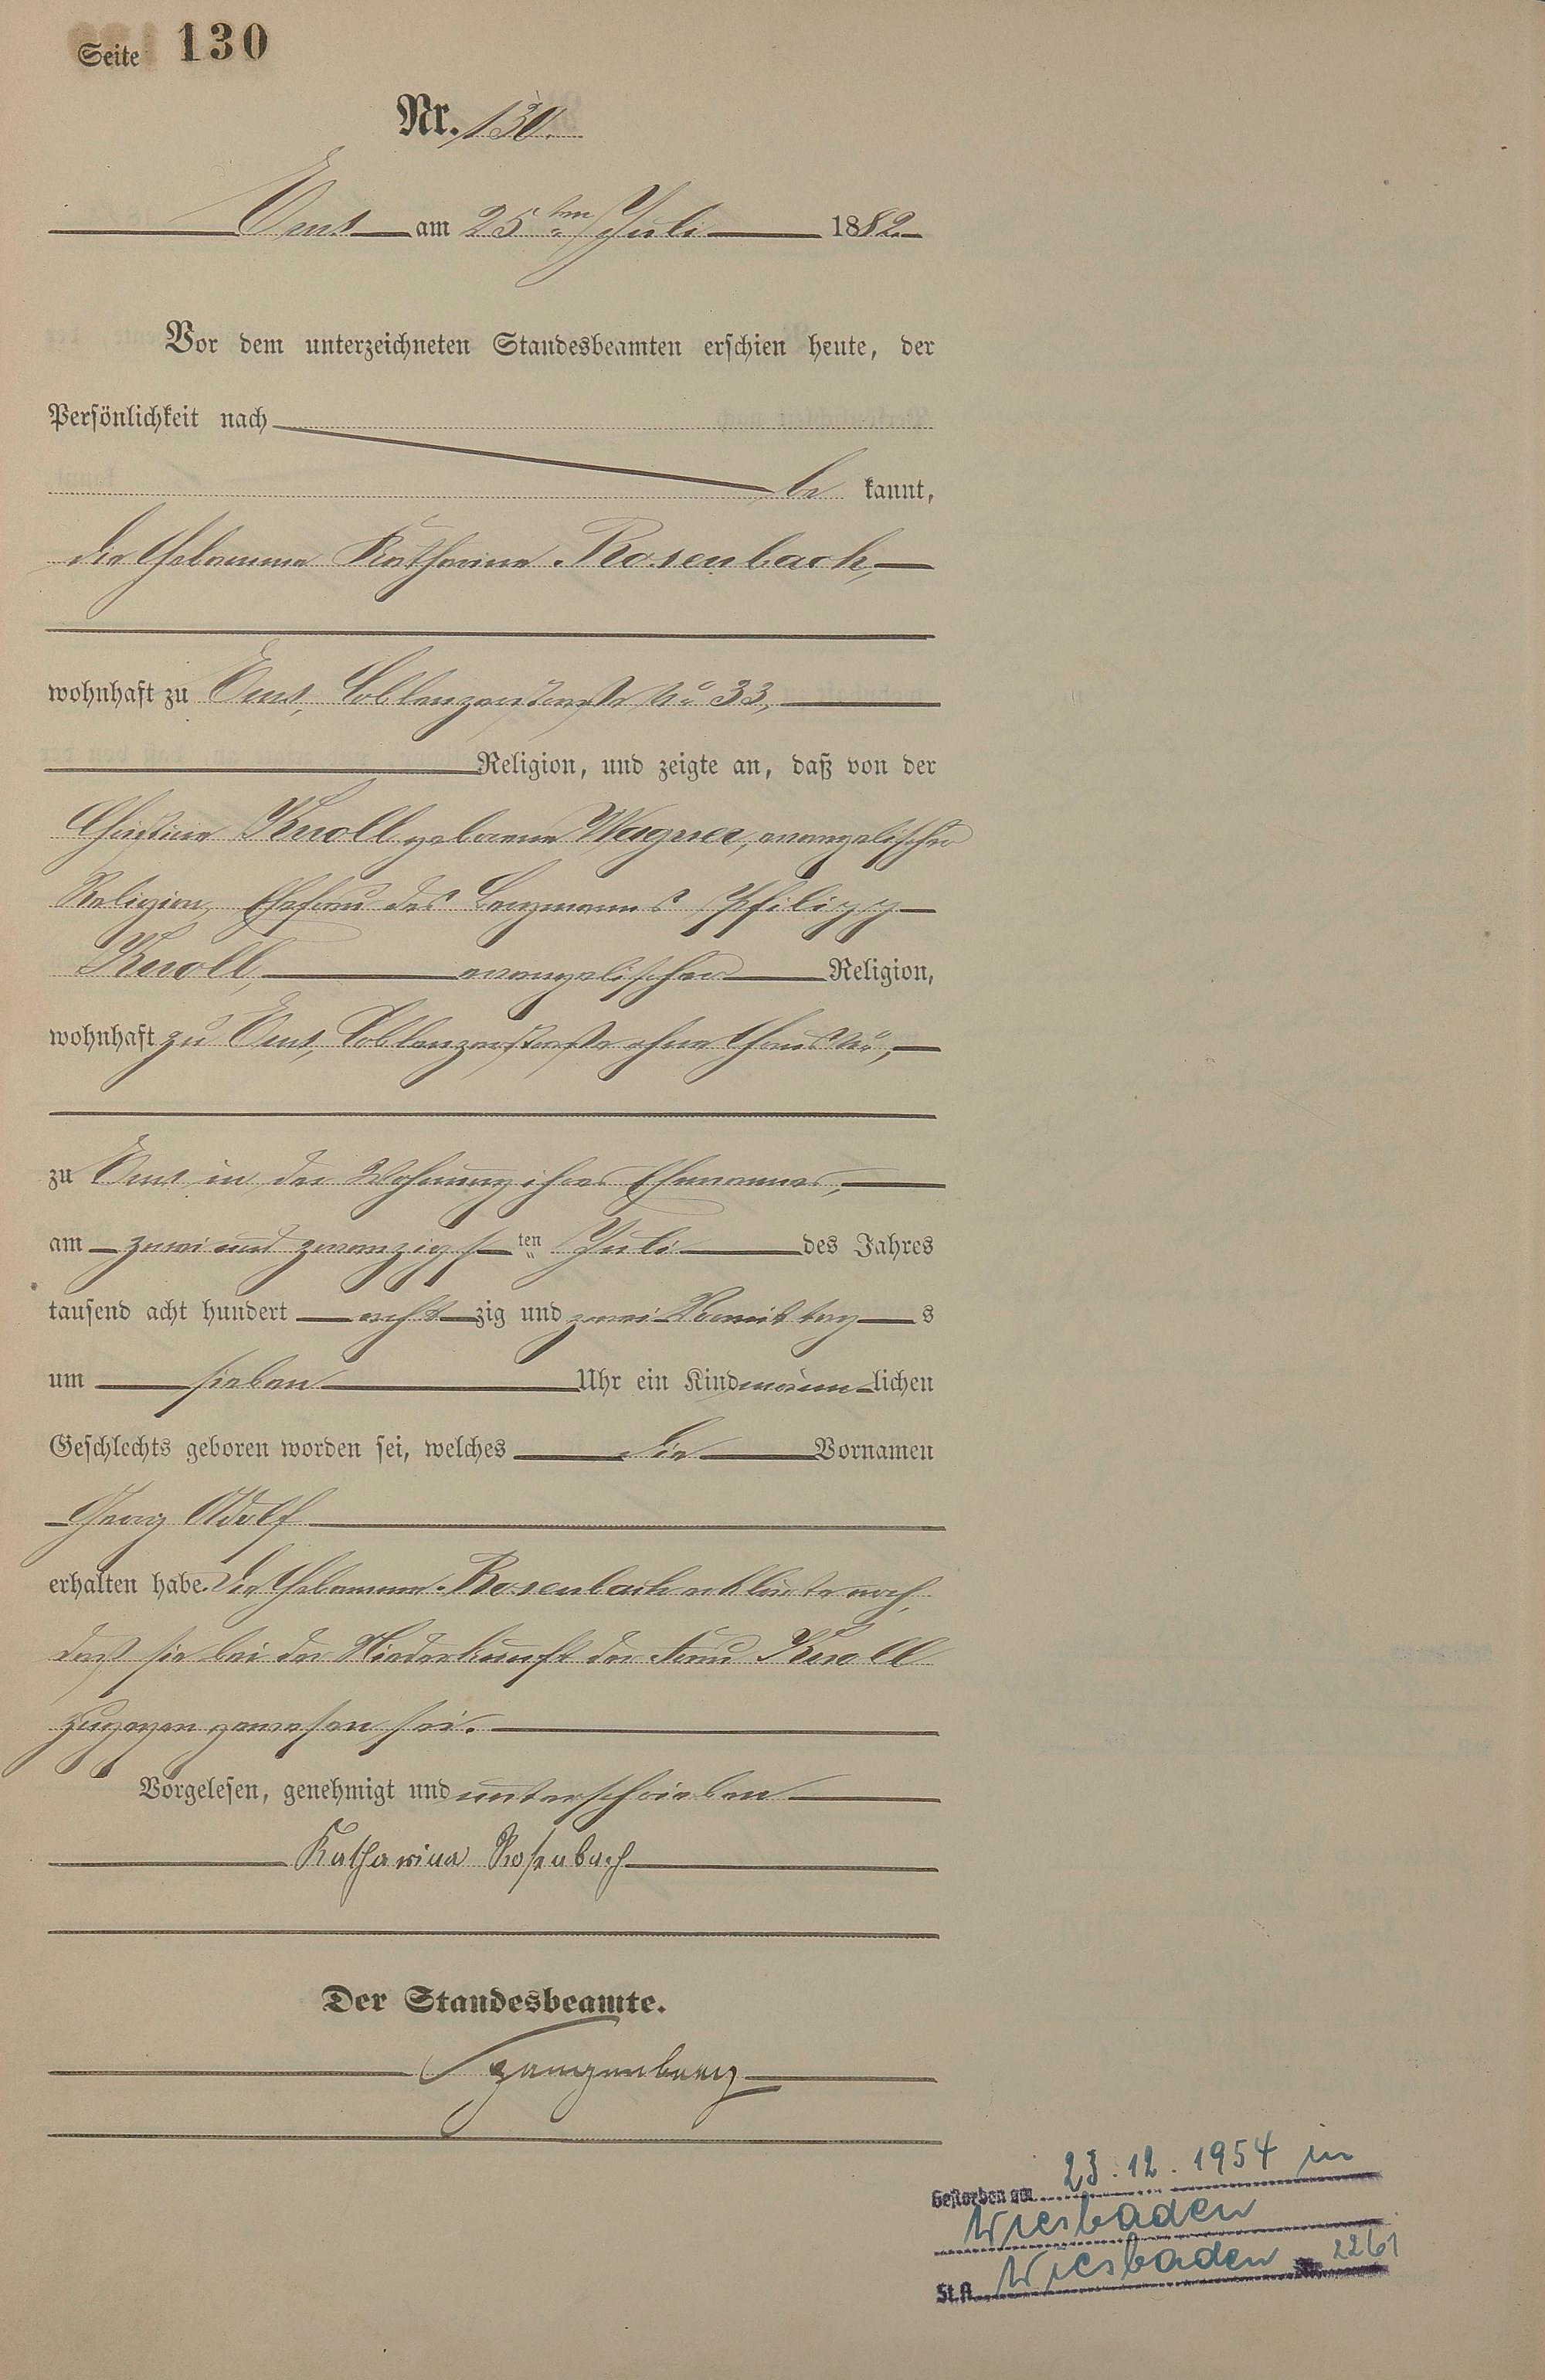 Seite 130
Nr. 130.
Ems am 25ten Juli 1882.
Vor dem unterzeichneten Standesbeamten erschien heute, der
Persönlichkeit nach
be kannt,
die Hebamme Katharina Rosenbach,
wohnhaft zu Ems, Coblenzerstraße No 33,
Religion, und zeigte an, daß von der
Christine Knoll geborene Wagner, evangelischer
Religion, Ehefrau des Bergmanns Philipp
Knoll, evangelischer Religion,
wohnhaft zu Ems, Coblenzerstraße ohne Haus No,
zu Ems in der Wohnung ihres Ehemannes,
am zwei und zwanzigsten Juli des Jahres
tausend acht hundert acht zig und zwei Vormittag s
um sieben Uhr ein Kind männ lichen
Geschlechts geboren worden sei, welches die Vornamen
Georg Adolf
erhalten habe. Die Hebamme Rosenbach erklärte noch,
daß sie bei der Niederkunft der Frau Knoll
zugegen gewesen sei.
Vorgelesen, genehmigt und unterschrieben
Katharina Rosenbach
Der Standesbeamte.
Spangenberg
Gestorben am 23.12.1954 in
Wiesbaden
St.A. Wiesbaden Nr. 2261